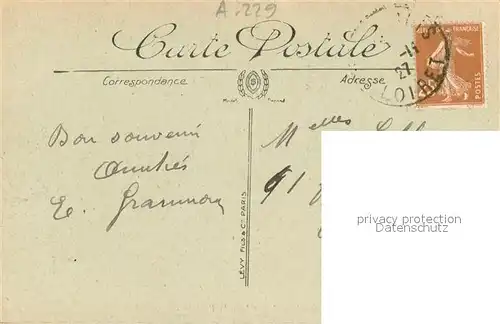 A.229
Carte Postale
Correspondance
Adresse
FRANÇAISE
POSTES
27 -11
LOIRET
Bon souvenir
Amitiés
E.
Melles
91
LÉVY FILS & Cie PARIS
privacy protection
Datenschutz